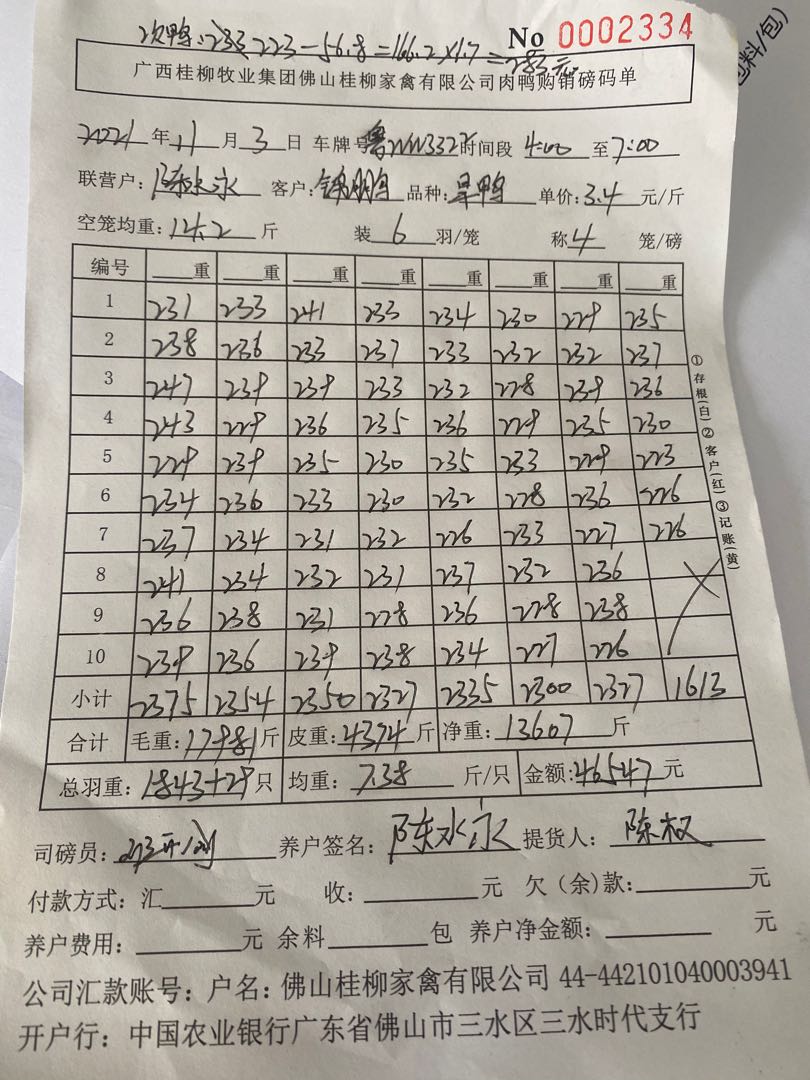 次鸭: 223-56.8=166.2×1.7=283元
No 0002334
广西桂柳牧业集团佛山桂柳家禽有限公司肉鸭购销磅码单
2021年11月3日 车牌号 NW3322 时间段 4:00 至 7:00
联营户: 陈水永 客户: 锦鹏 品种: 旱鸭 单价: 3.4 元/斤
空笼均重: 14.2 斤 装 6 羽/笼 称 4 笼/磅
编号 重 重 重 重 重 重 重 重
1 231 233 241 233 234 230 229 235
2 238 236 233 237 233 232 232 237
3 247 239 239 233 232 228 239 236
4 243 229 236 235 236 229 235 230
5 229 239 235 230 235 233 229 223
6 234 236 233 230 232 228 236 226
7 237 234 231 232 226 233 227 226
8 241 234 232 231 237 232 236
9 236 238 231 228 236 228 238
10 239 236 239 238 234 227 226
小计 2375 2354 2350 2327 2335 2300 2327 1613
合计 毛重: 17981 斤 皮重: 4374 斤 净重: 13607 斤
总羽重: 1843+29 只 均重: 7.38 斤/只 金额: 46547 元
司磅员: 养户签名: 陈水永 提货人: 陈权
付款方式: 汇 元 收: 元 欠(余)款: 元
养户费用: 元 余料 包 养户净金额: 元
公司汇款账号: 户名: 佛山桂柳家禽有限公司 44-442101040003941
开户行: 中国农业银行广东省佛山市三水区三水时代支行
①存根(白)②客户(红)③记账(黄)
料/包)